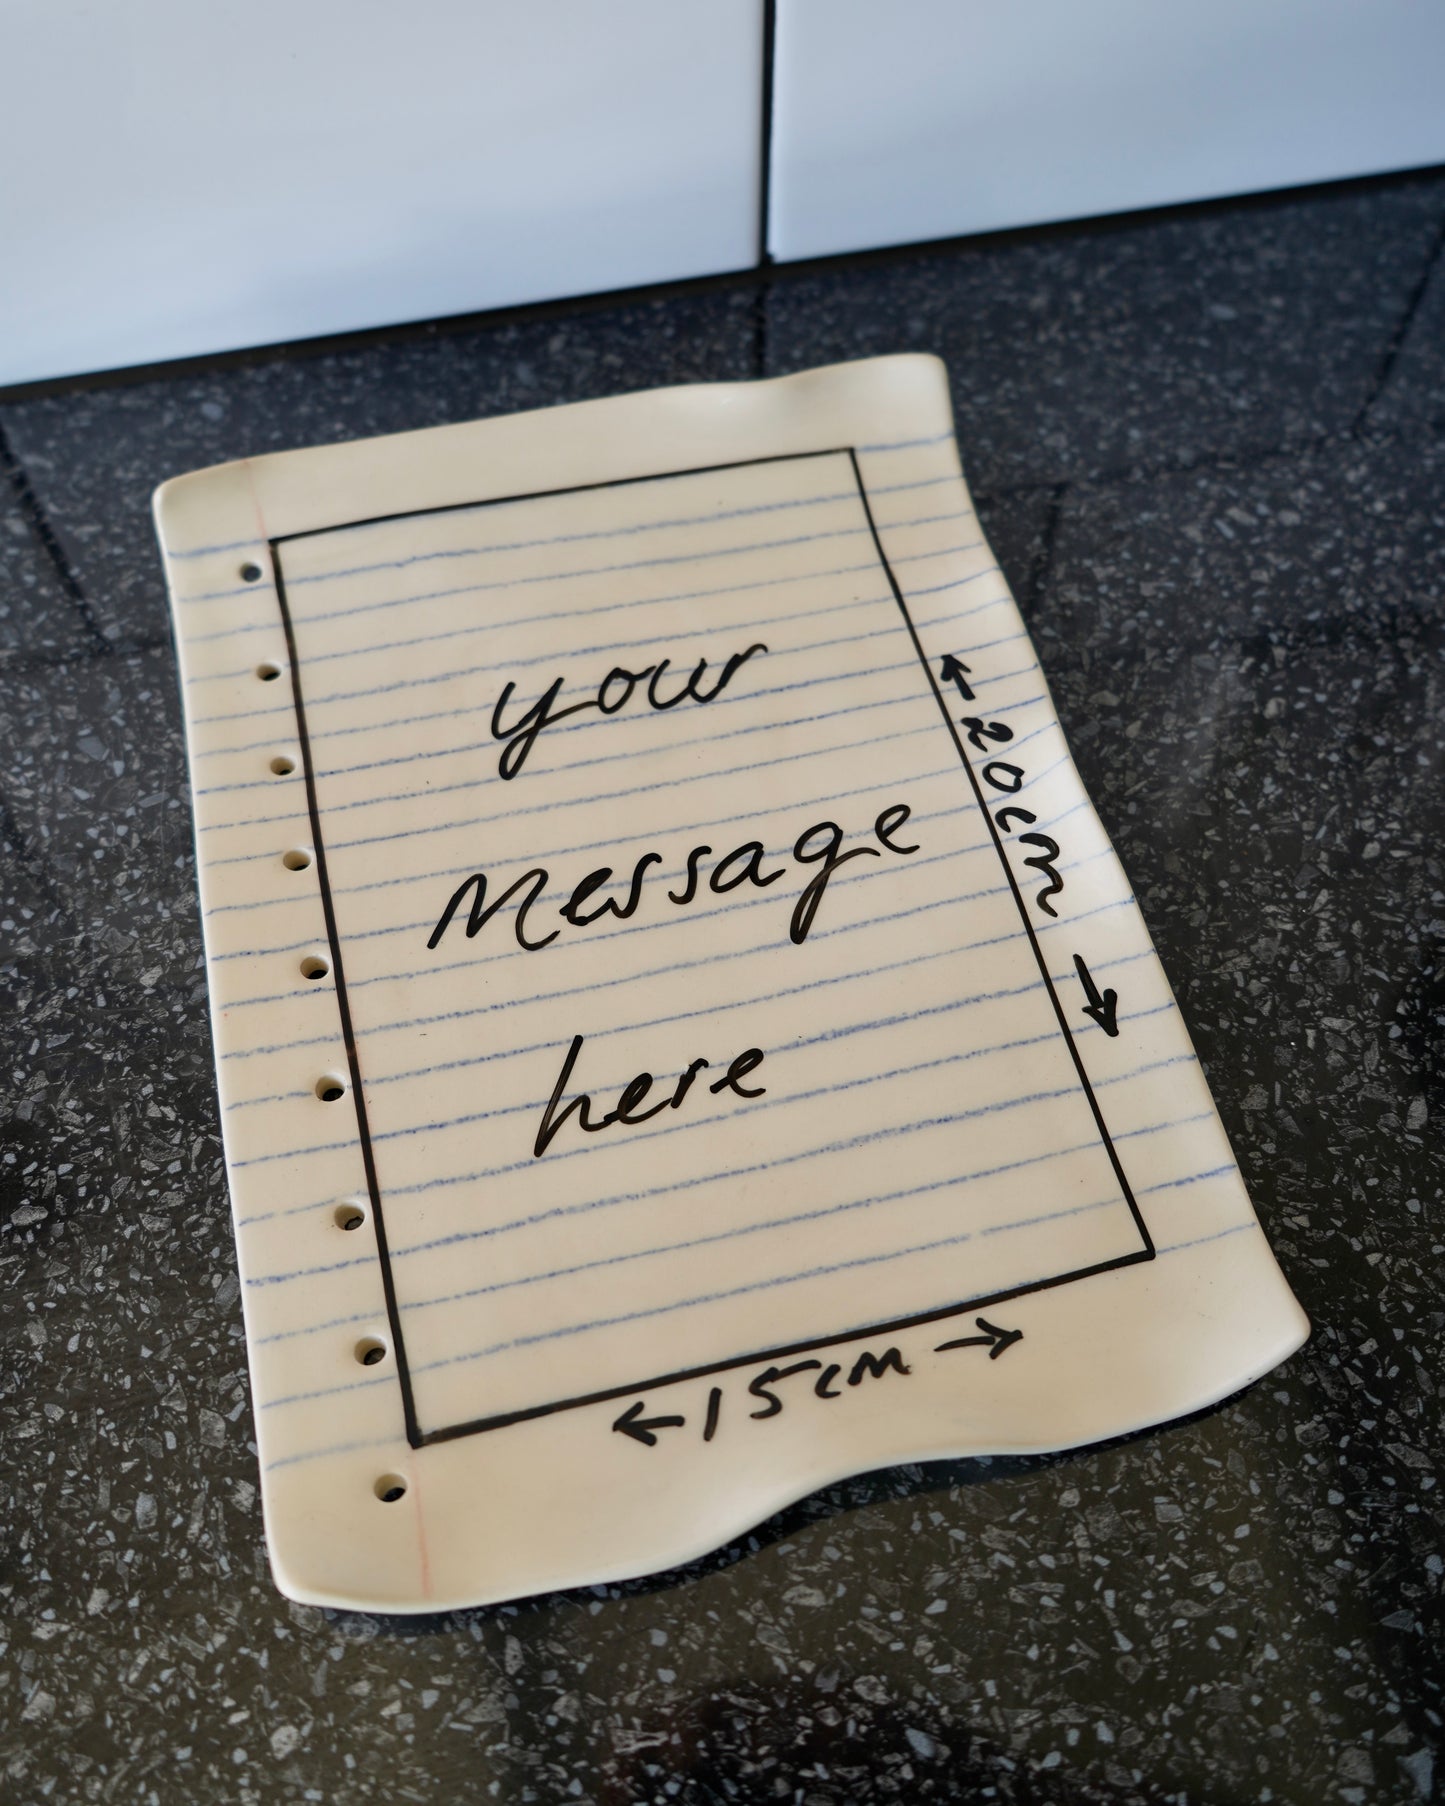 your
Message
here
← 20cm →
← 15cm →